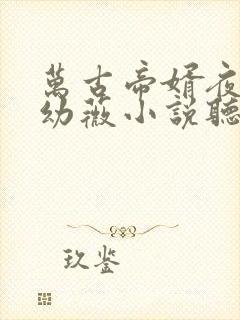 萬古帝婿夜
幼薇小說聽
玖鉴